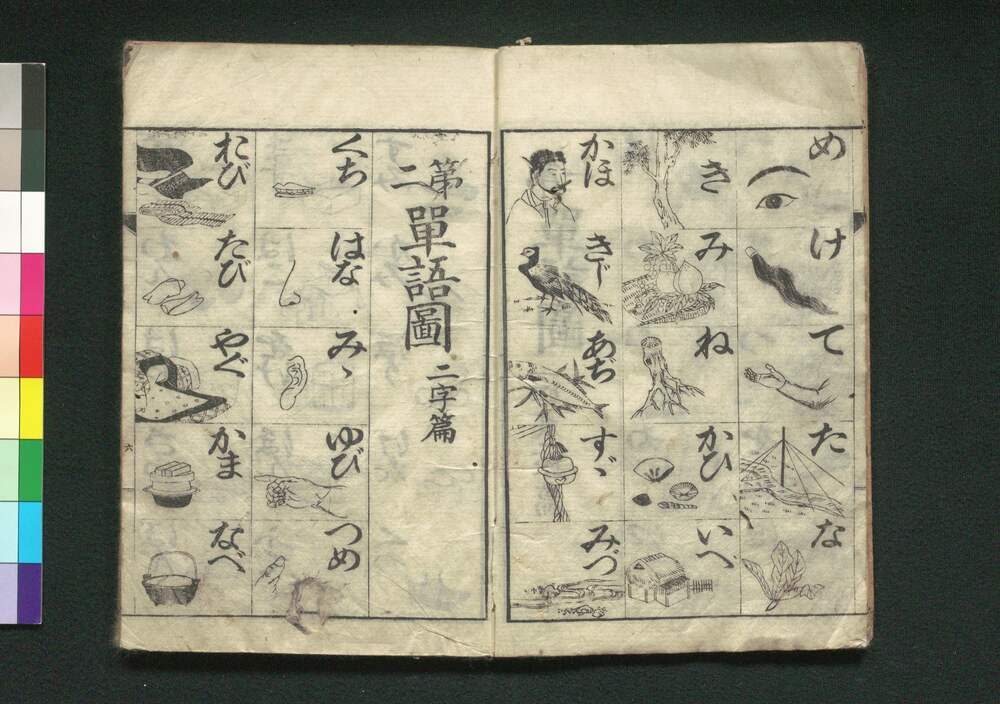 め
け
て
た
な
き
み
ね
かひ
いへ
かほ
きじ
あぢ
すゞ
みづ
第二 單語圖 二字篇
くち
はな
みゝ
ゆび
つめ
おび
たび
やぐ
かま
なべ
六